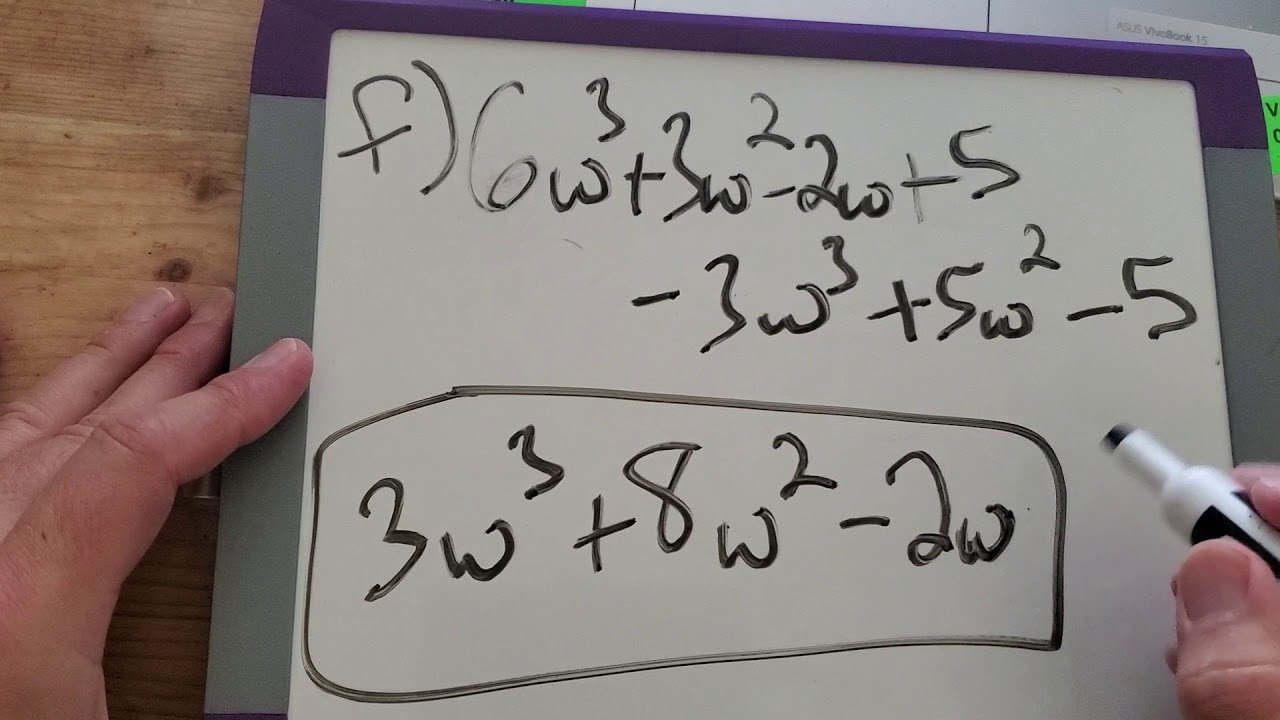 ASUS VivoBook 15
f) 6w³+3w²-2w+5
-3w³+5w²-5
3w³+8w²-2w